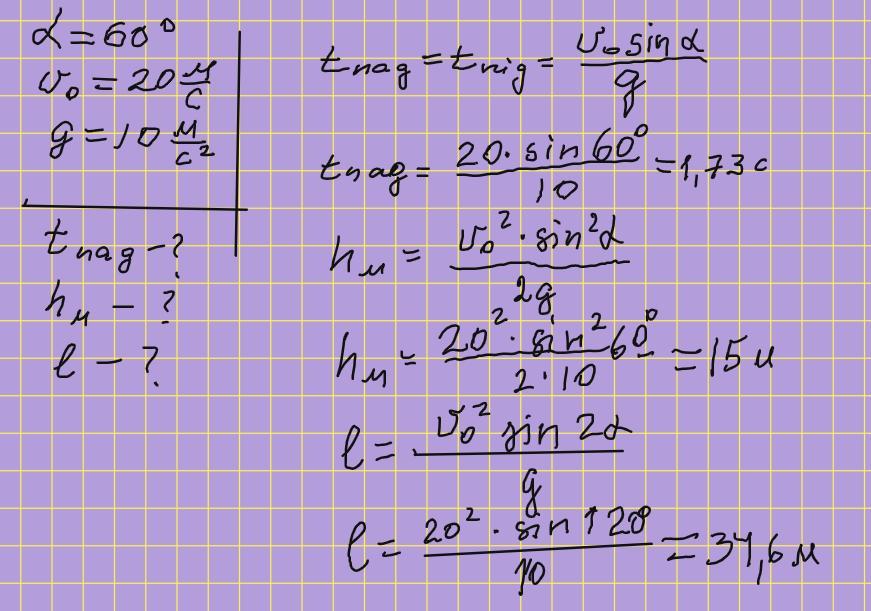 α = 60°
v₀ = 20 м/с
g = 10 м/с²
t пад - ?
hм - ?
l - ?
t пад = t під = v₀ sin α / g
t пад = 20 · sin 60° / 10 = 1,73 с
hм = v₀² · sin² α / 2g
hм = 20² · sin² 60° / 2 · 10 = 15 м
l = v₀² sin 2α / g
l = 20² · sin 120° / 10 = 34,6 м